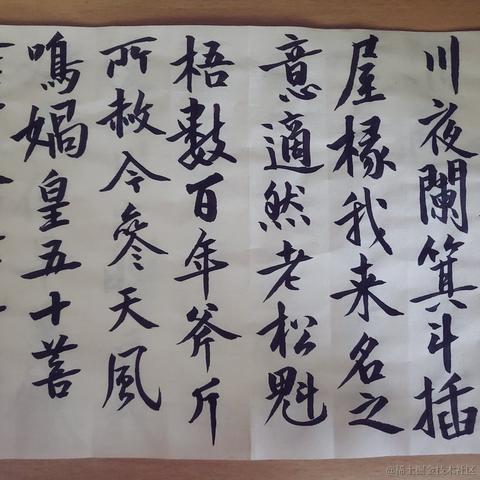 川夜闌箕斗插
屋椽我来名之
意適然老松魁
梧數百年斧斤
所赦今參天風
鳴媧皇五十菩
@稀土掘金技术社区